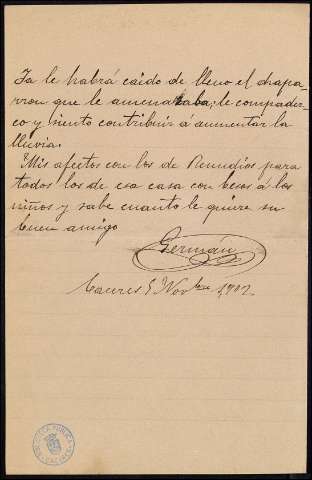 Ya le habrá caido de lleno el chapa-
rron que le amenazaba; le compadez-
co y siento contribuir á aumentar la
lluvia.
Mis afectos con los de Remedios para
todos los de esa casa con besos á los
niños y sabe cuanto le quiere su
buen amigo
Germán
Caceres 5 Novbre 1902.
BIBLIOTECA PUBLICA
CACERES